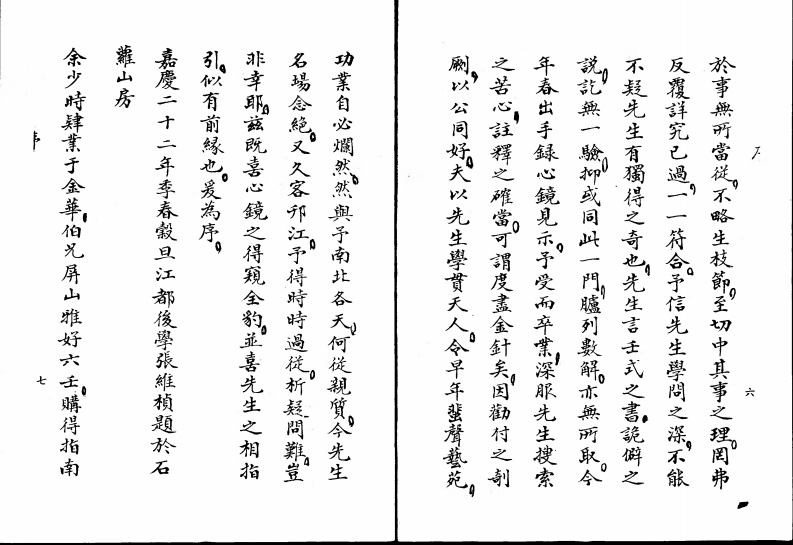 於事無所當從不略生枝節至切中其事之理罔弗
反覆詳究已過一一符合予信先生學問之深不能
不疑先生有獨得之奇也先生言壬式之書詭僻之
說訖無一驗抑或同此一門臚列數解亦無所取今
年春出手錄心鏡見示予受而卒業深服先生搜索
之苦心註釋之確當可謂度盡金針矣因勸付之剞
劂以公同好夫以先生學貫天人令早年蜚聲藝苑
六
功業自必爛然然與予南北各天何從親質今先生
名場念絕又久客邗江予得時時過從析疑問難豈
非幸耶茲既喜心鏡之得窺全豹並喜先生之相指
引似有前緣也爰為序
嘉慶二十二年季春穀旦江都後學張維楨題於石
蘿山房
余少時肄業于金華伯兄屏山雅好六壬購得指南
七